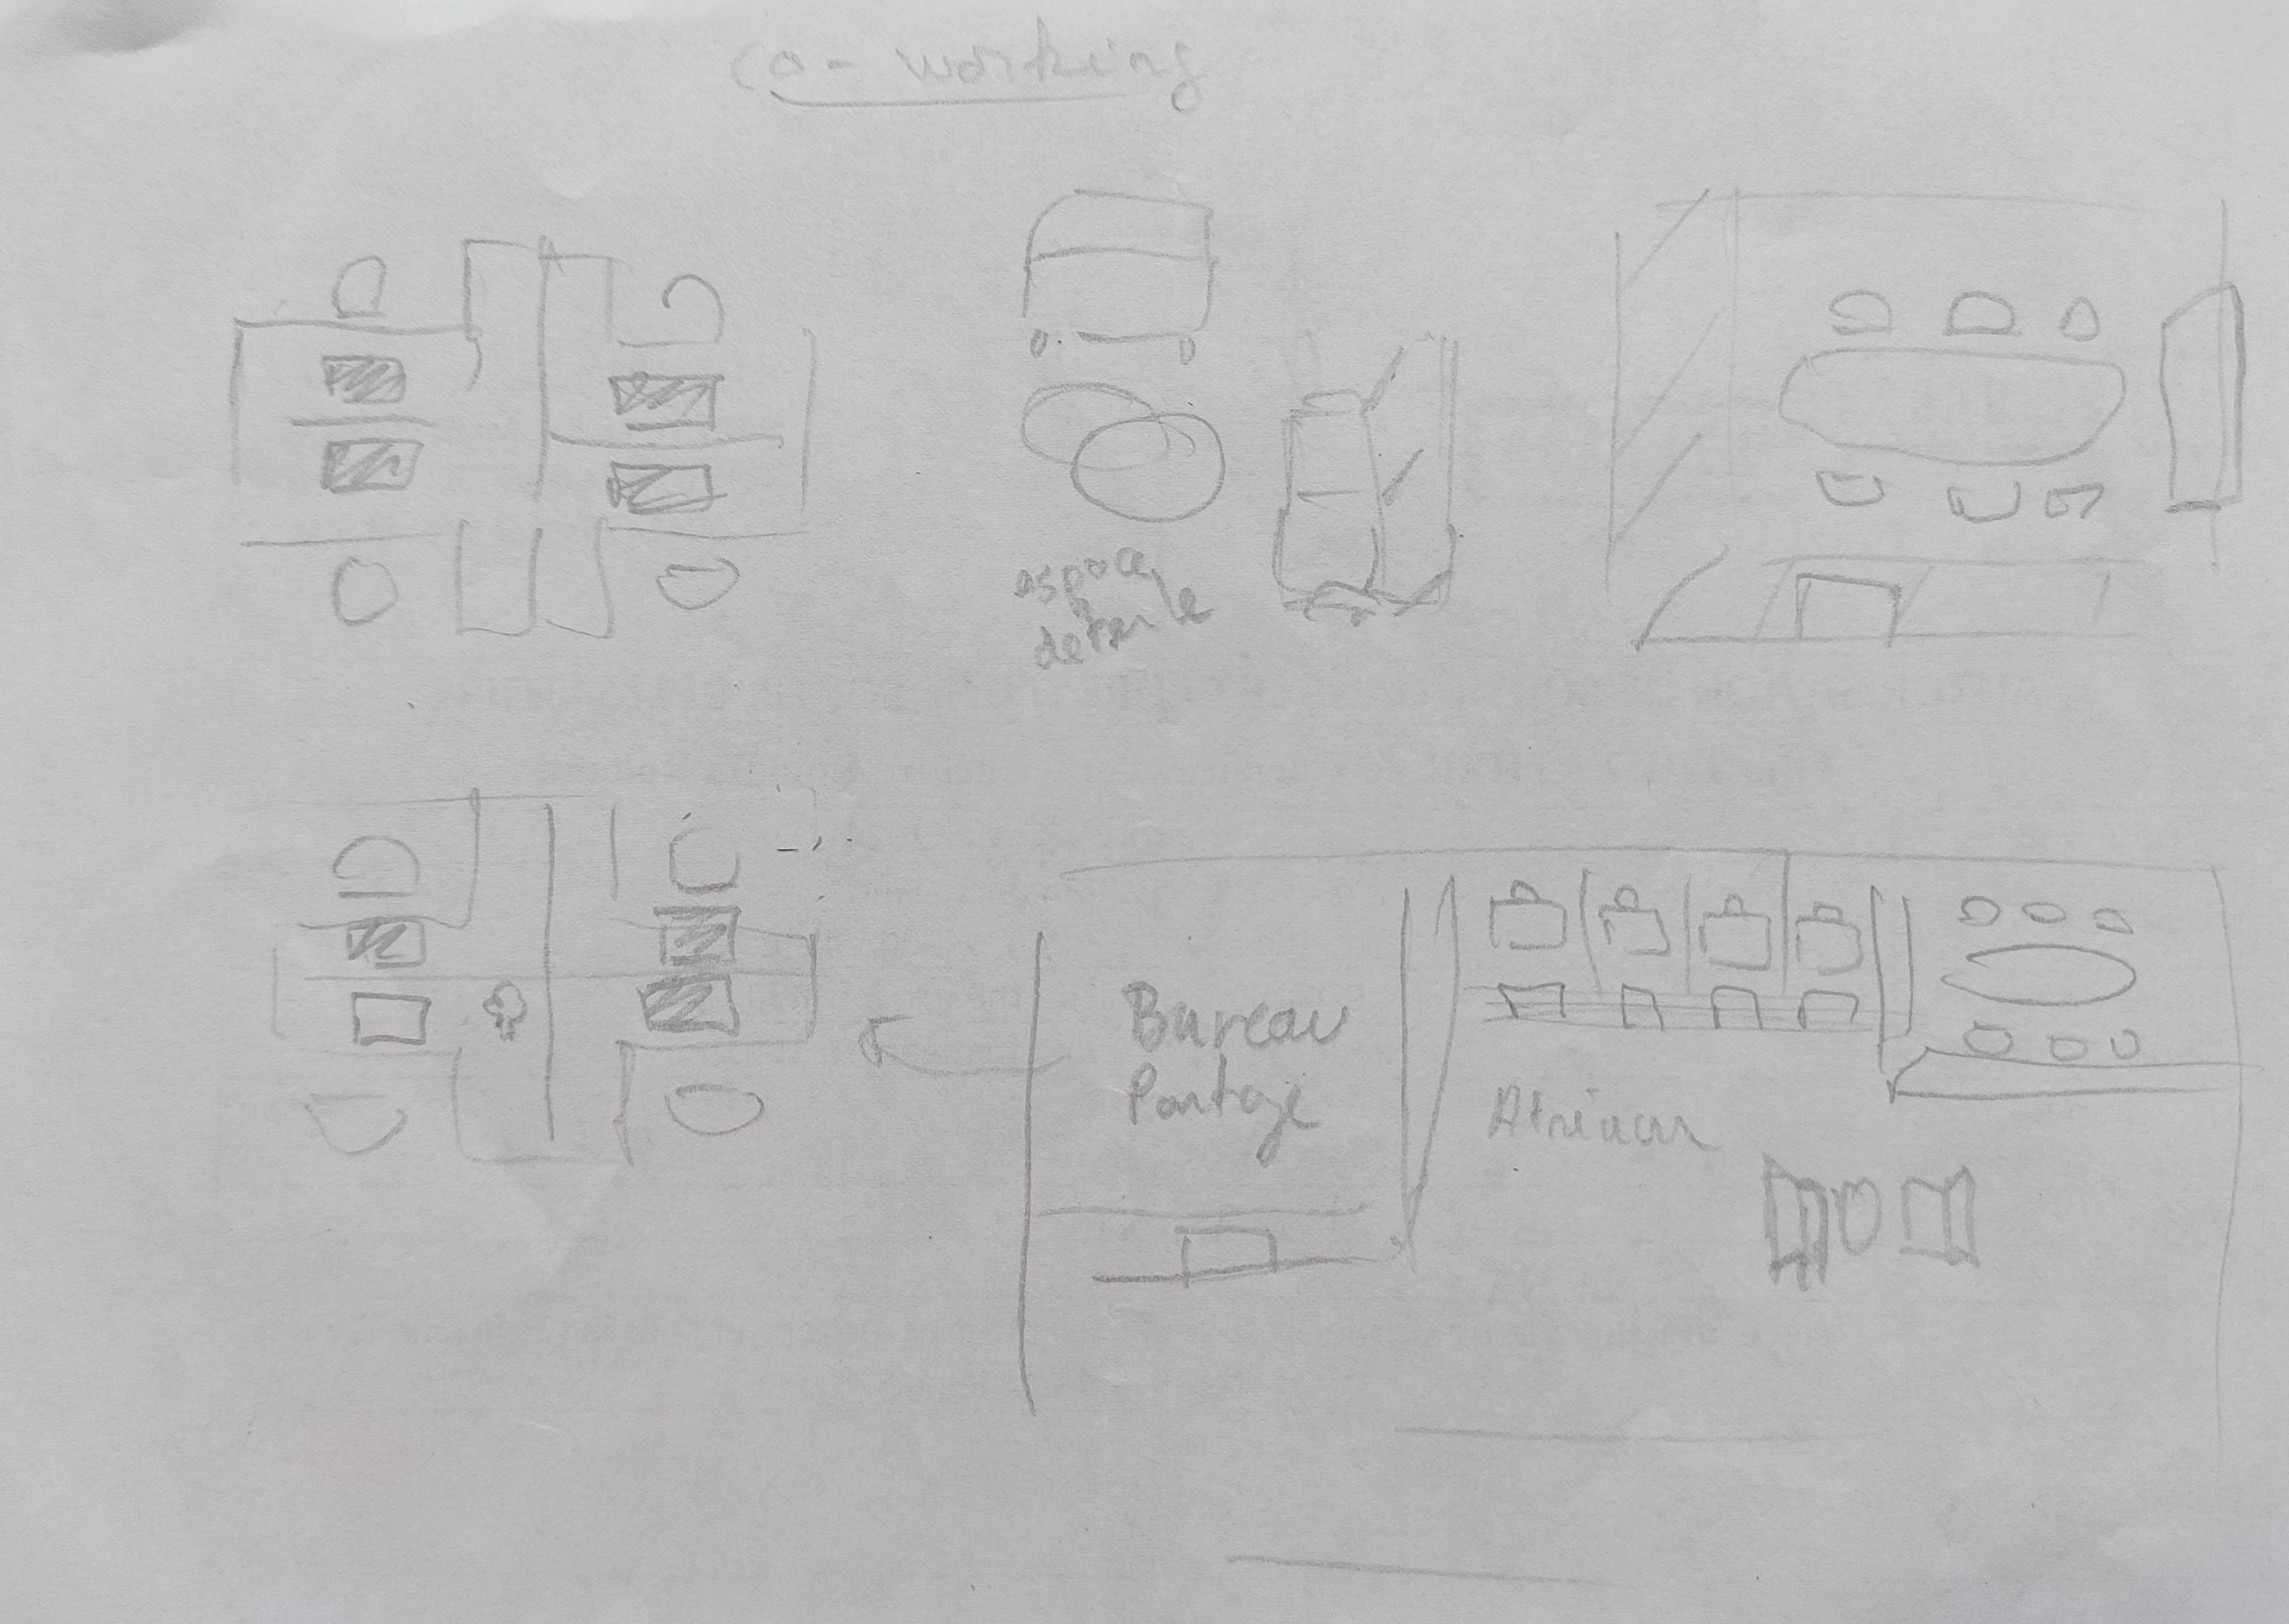 co-working
espace
detente
Bureau
Partage